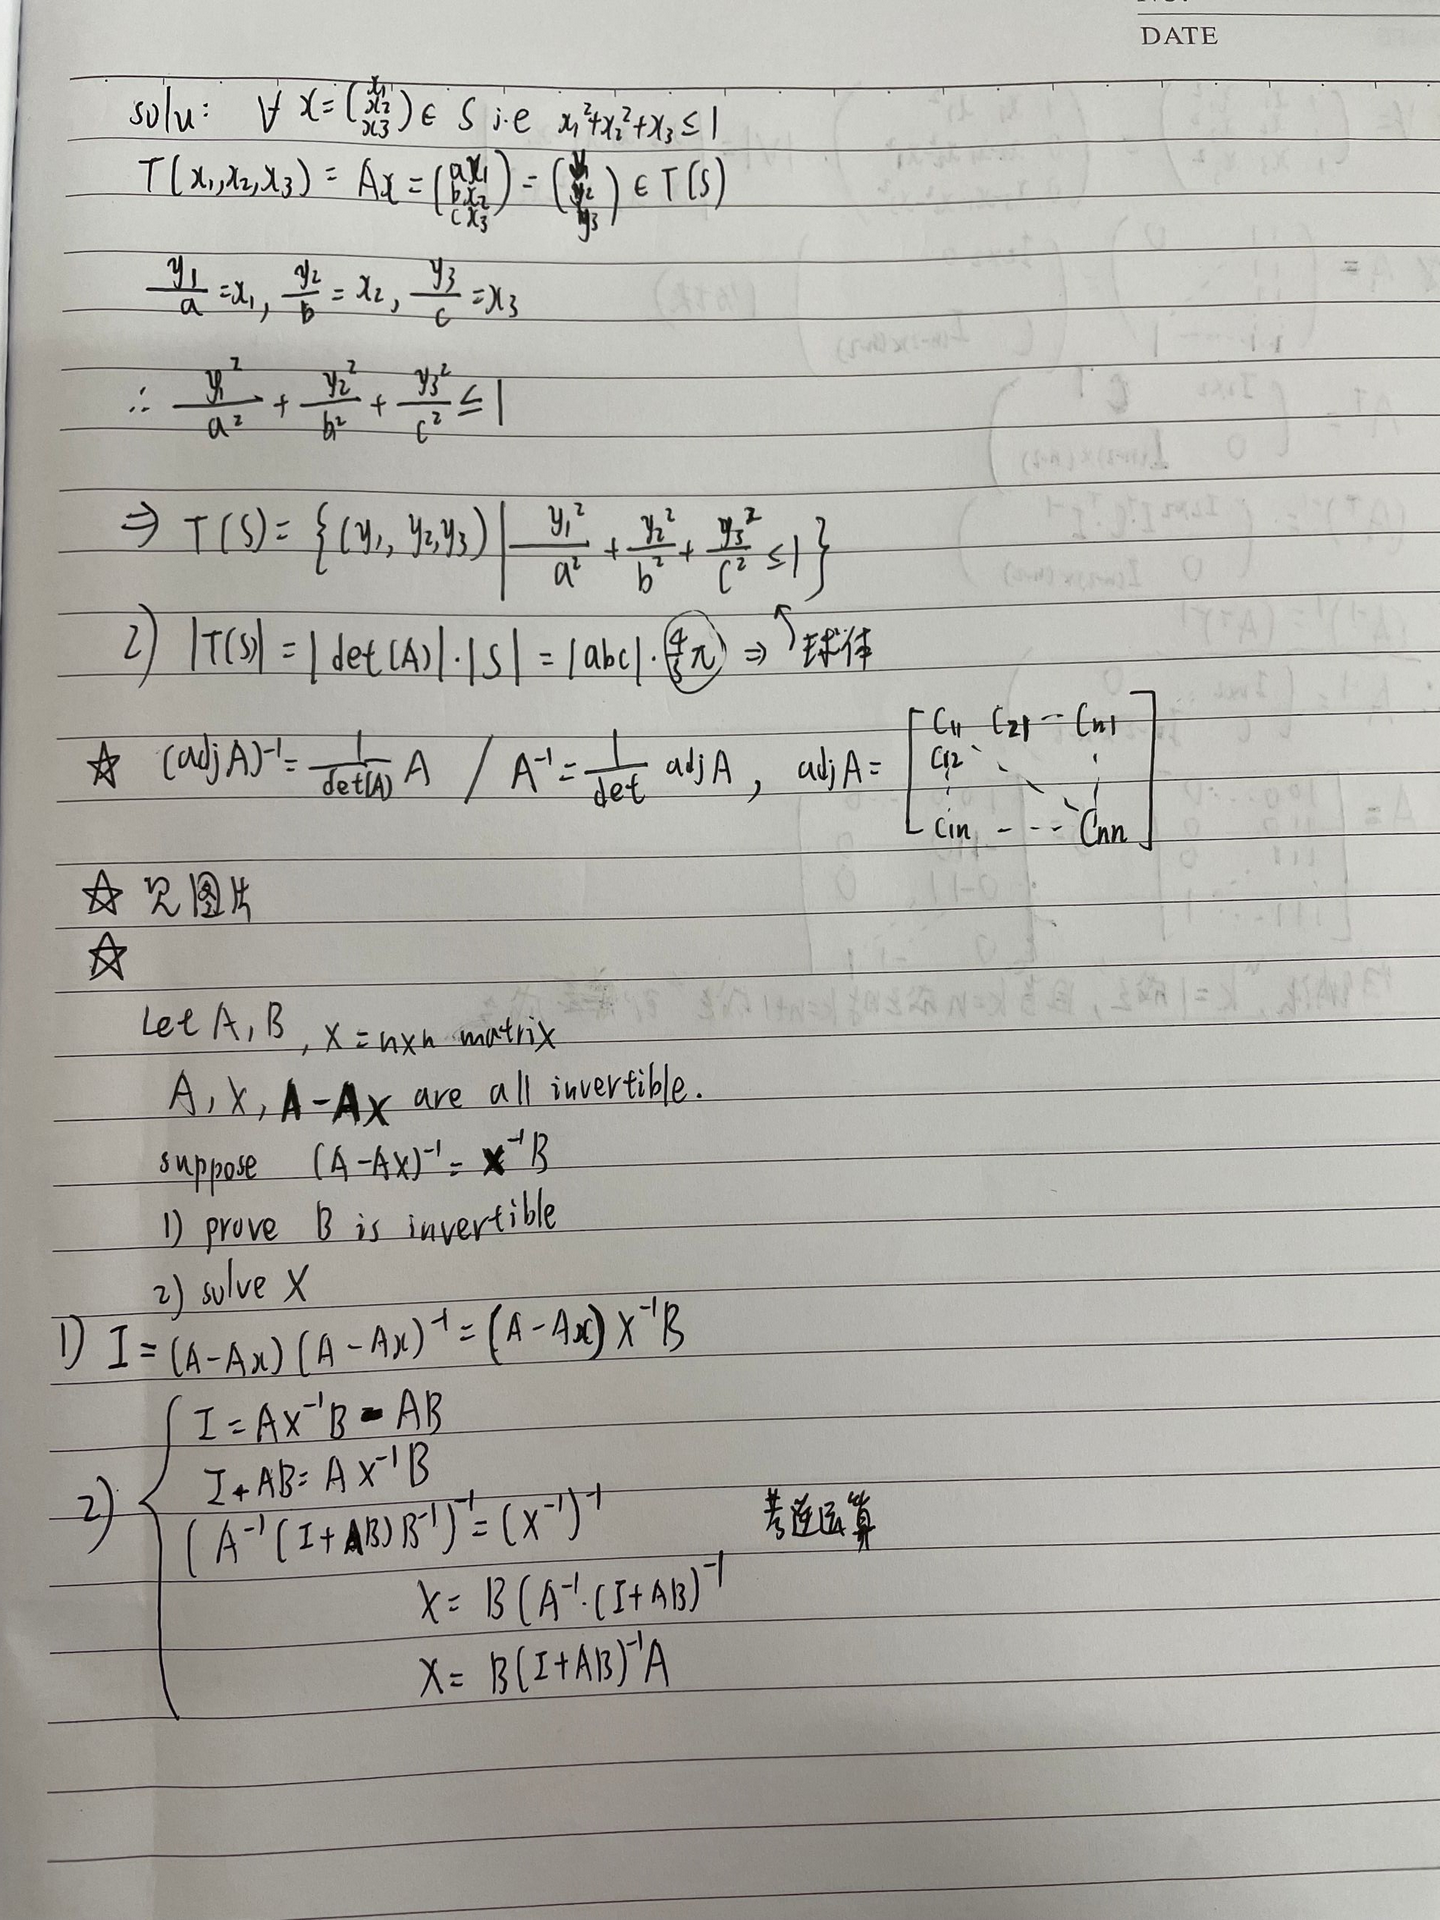 DATE
solu: ∀ x=(x1 x2 x3)∈ S i.e x₁²+x₂²+x₃≤1
T(x₁,x₂,x₃) = Ax = (ax₁ bx₂ cx₃) = (y₁ y₂ y₃) ∈ T(S)
y₁/a =x₁, y₂/b = x₂, y₃/c =x₃
∴ y₁²/a² + y₂²/b² + y₃²/c² ≤ 1
⇒ T(S)= {(y₁, y₂,y₃) | y₁²/a² + y₂²/b² + y₃²/c² ≤1}
2) |T(S)| = |det(A)|·|S| = |abc|·4/3 π ⇒ 球体
☆ (adjA)⁻¹= 1/det(A) A / A⁻¹= 1/det adjA, adjA= [C₁₁ C₂₁ -- Cn1
C₁₂
C1n - - - Cnn]
☆ 见图片
☆
Let A, B, X = n×n matrix
A, X, A-AX are all invertible.
suppose (A-AX)⁻¹= X⁻¹B
1) prove B is invertible
2) solve X
1) I = (A-Ax)(A-Ax)⁻¹ = (A-Ax) X⁻¹B
I = AX⁻¹B - AB
I+AB= AX⁻¹B
2) (A⁻¹(I+AB)B⁻¹)⁻¹= (X⁻¹)⁻¹ 考逆运算
X= B(A⁻¹·(I+AB)⁻¹
X= B(I+AB)⁻¹A